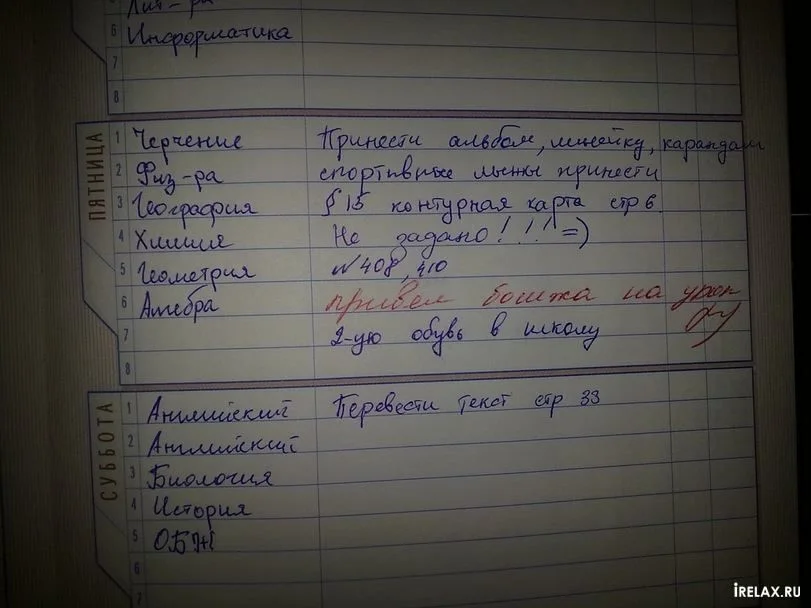 Лит-ра
6 Информатика
7
8
ПЯТНИЦА
1 Черчение Принести альбом, линейку, карандаш
2 Физ-ра спортивные лыжи принести
3 География § 15 контурная карта стр 6.
4 Химия Не задано!!! =)
5 Геометрия №408, 410
6 Алгебра привел бомжа на урок
7 2-ую обувь в школу
8
СУББОТА
1 Английский Перевести текст стр 33
2 Английский
3 Биология
4 История
5 ОБЖ
6
7
iRELAX.RU